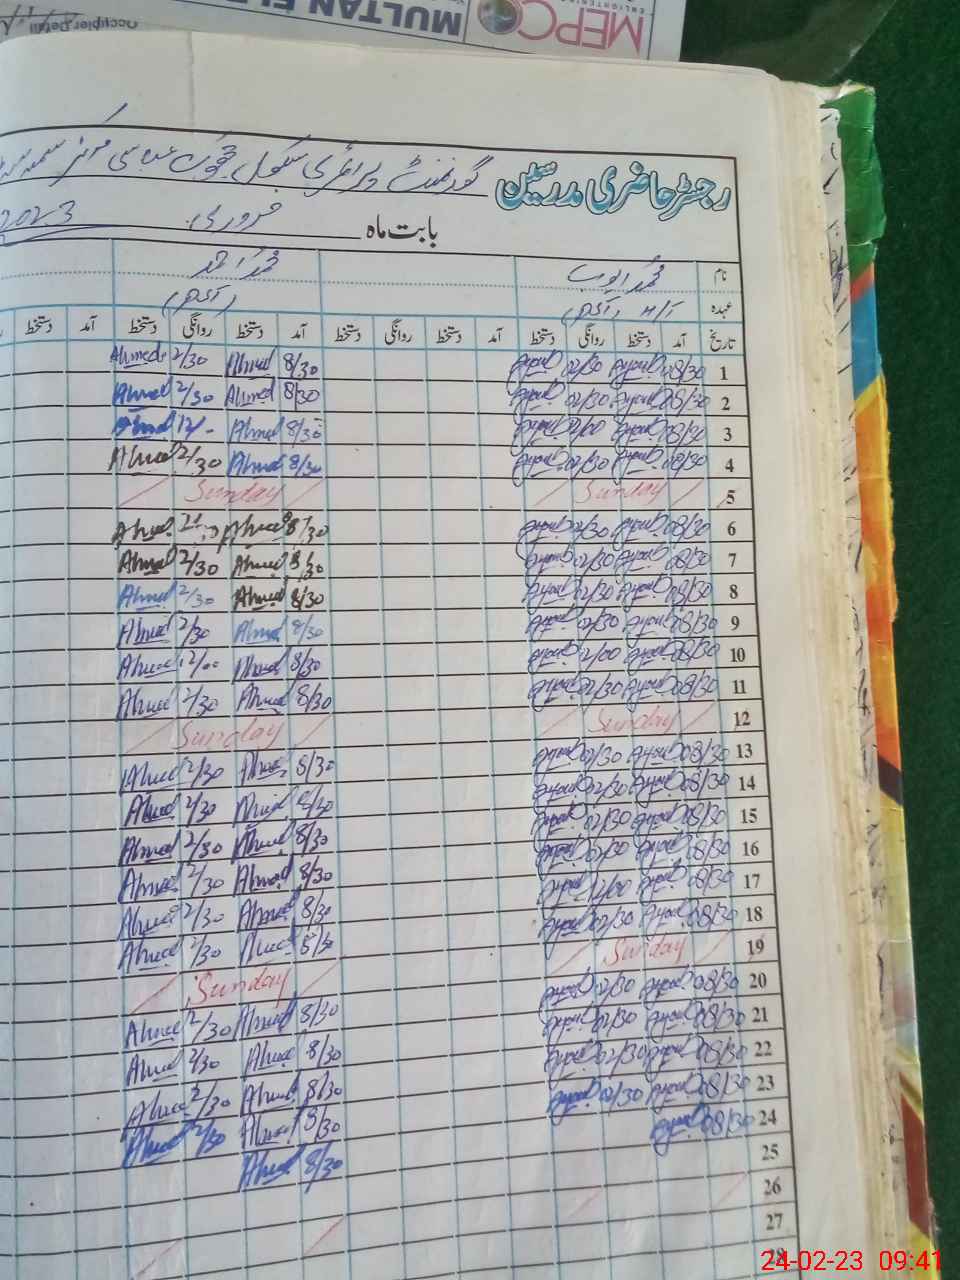 MEPCO
MULTAN ELE
Occupier Detail
رجسٹر حاضری مدرسین گورنمنٹ پرائمری سکول
بابت ماہ فروری 2023
نام محمد ایوب محمد احمد
عہدہ
تاریخ آمد دستخط روانگی دستخط آمد دستخط روانگی دستخط آمد دستخط روانگی دستخط آمد دستخط
1 08/30 Ayoub 02/30 Ayoub 8/30 Ahmed 2/30 Ahmed
2 08/30 Ayoub 02/30 Ayoub 8/30 Ahmed 2/30 Ahmed
3 08/30 Ayoub 12/00 Ayoub 8/30 Ahmed 12/- Ahmed
4 08/30 Ayoub 02/30 Ayoub 8/30 Ahmed 2/30 Ahmed
5 Sunday Sunday
6 08/30 Ayoub 02/30 Ayoub 8/30 Ahmed Ahmed
7 08/30 Ayoub 02/30 Ayoub 8/30 Ahmed 2/30 Ahmed
8 08/30 Ayoub 02/30 Ayoub 8/30 Ahmed 2/30 Ahmed
9 08/30 Ayoub 02/30 Ayoub 8/30 Ahmed 2/30 Ahmed
10 08/30 Ayoub 12/00 Ayoub 8/30 Ahmed 12/00 Ahmed
11 08/30 Ayoub 02/30 Ayoub 8/30 Ahmed 2/30 Ahmed
12 Sunday Sunday
13 08/30 Ayoub 02/30 Ayoub 8/30 Ahmed 2/30 Ahmed
14 08/30 Ayoub 02/30 Ayoub 8/30 Ahmed 2/30 Ahmed
15 08/30 Ayoub 02/30 Ayoub 8/30 Ahmed 2/30 Ahmed
16 08/30 Ayoub 02/30 Ayoub 8/30 Ahmed 2/30 Ahmed
17 08/30 Ayoub 12/00 Ayoub 8/30 Ahmed 2/30 Ahmed
18 08/30 Ayoub 02/30 Ayoub 8/30 Ahmed 2/30 Ahmed
19 Sunday Sunday
20 08/30 Ayoub 02/30 Ayoub 8/30 Ahmed 2/30 Ahmed
21 08/30 Ayoub 02/30 Ayoub 8/30 Ahmed 2/30 Ahmed
22 08/30 Ayoub 02/30 Ayoub 8/30 Ahmed 2/30 Ahmed
23 08/30 Ayoub 02/30 Ayoub 8/30 Ahmed 2/30 Ahmed
24 08/30 Ayoub 8/30 Ahmed
25
26
27
28
24-02-23 09:41